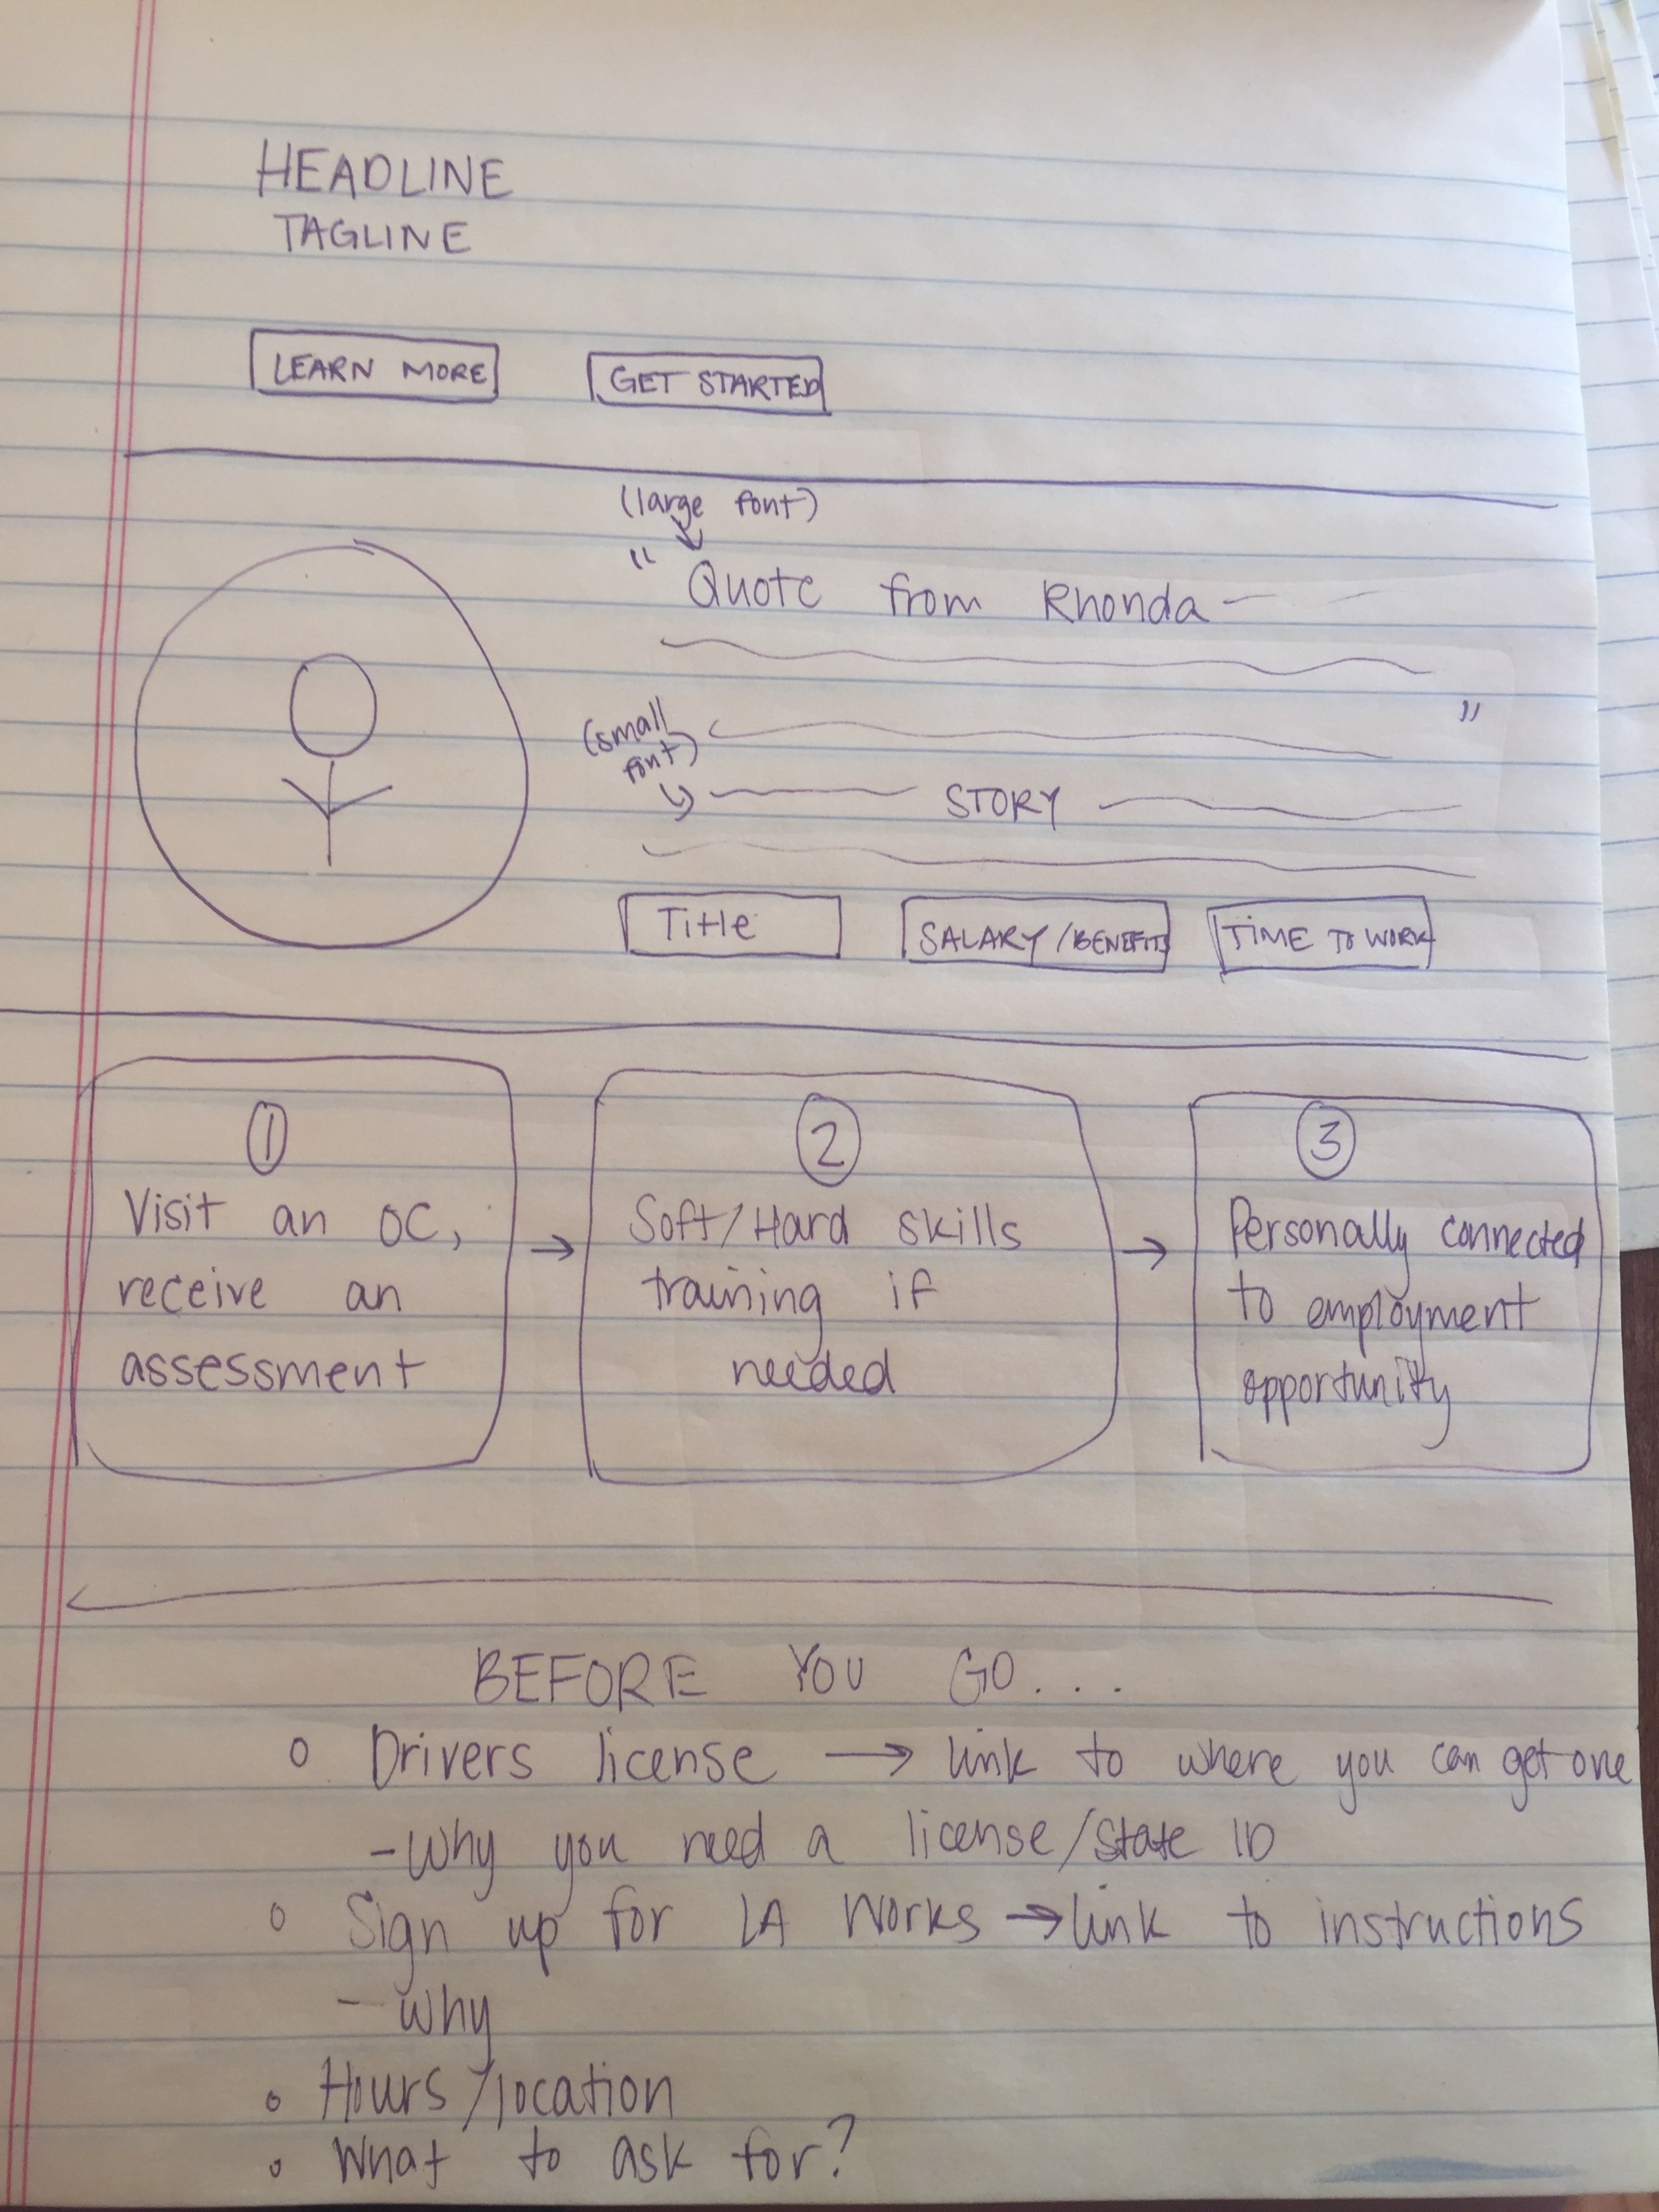 HEADLINE
TAGLINE
LEARN MORE GET STARTED
(large font)
" Quote from Rhonda
"
(small
font)
STORY
Title SALARY/BENEFITS TIME TO WORK
1
Visit an OC,
receive an
assessment
→
2
Soft/Hard skills
training if
needed
→
3
Personally connected
to employment
opportunity
BEFORE YOU GO...
o Drivers license → link to where you can get one
-Why you need a license/state ID
o Sign up for LA Works → link to instructions
- why
o Hours/location
o What to ask for?